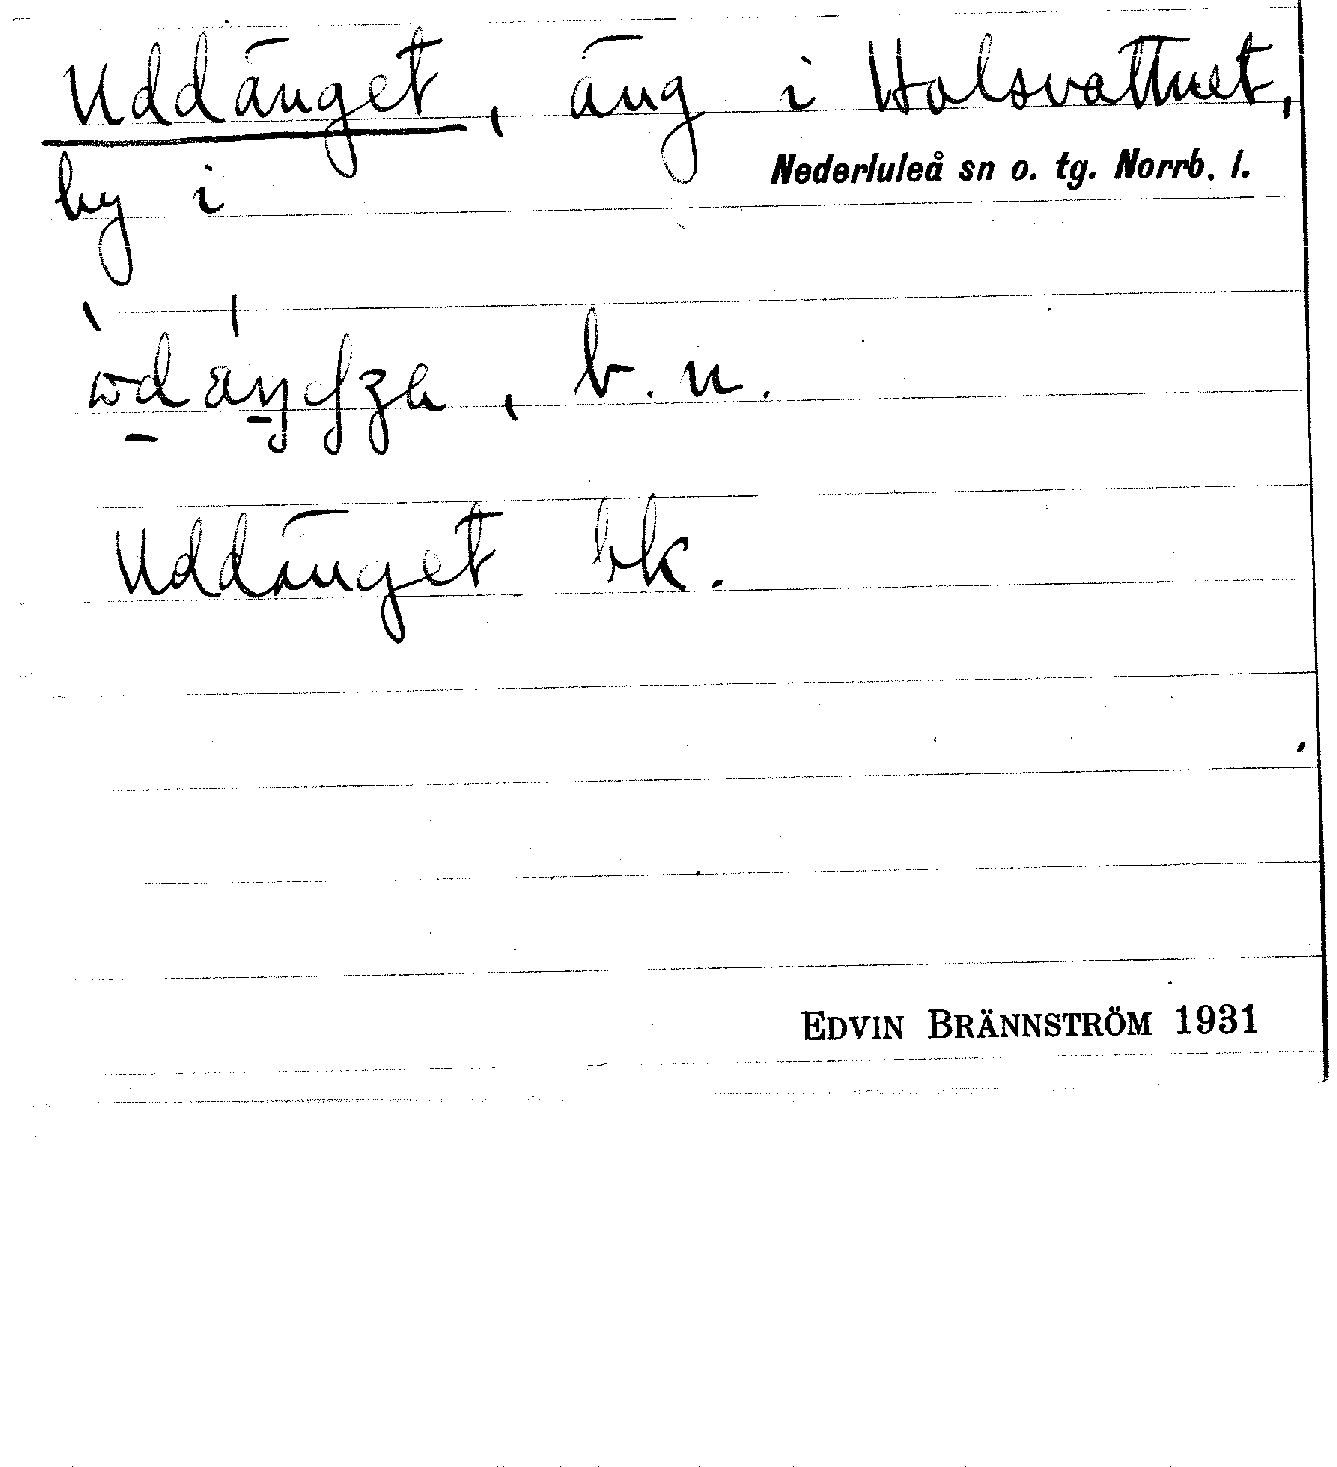 Uddänget, äng i Holsvattnet,
by i Nederluleå sn o. tg. Norrb. l.
, b. n.
Uddänget bk.
EDVIN BRÄNNSTRÖM 1931